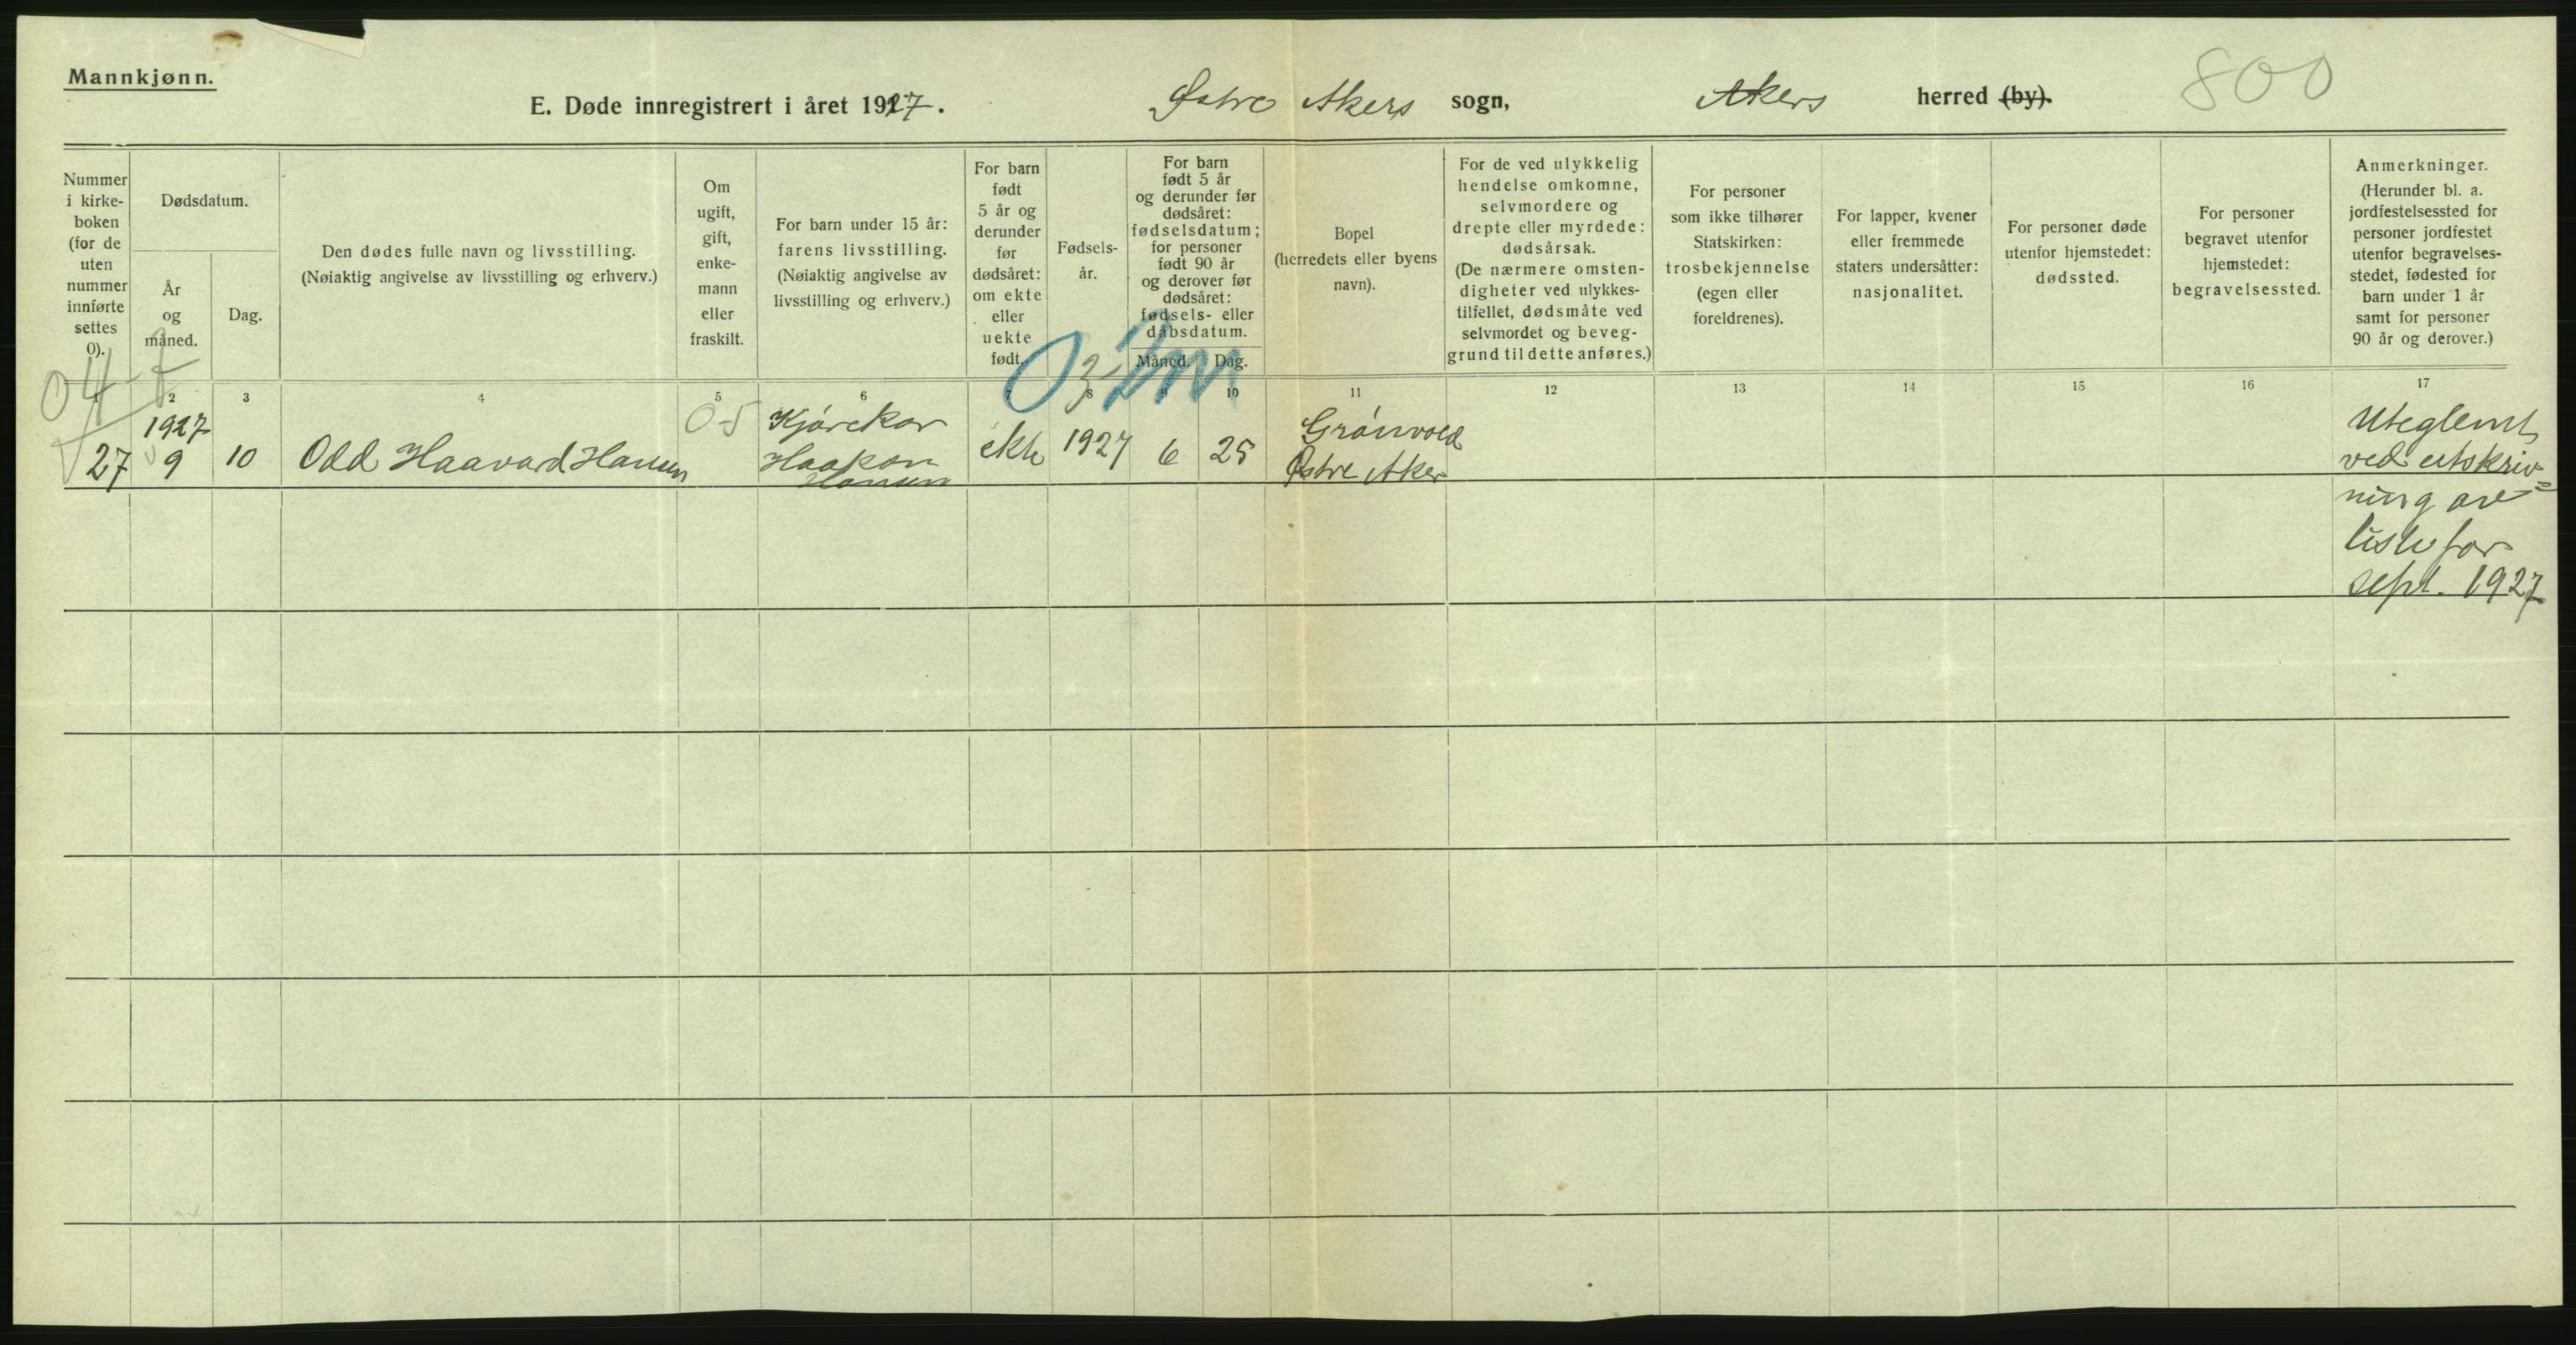 Mannkjønn.
E. Døde innregistrert i året 1927. Østre Akers sogn, Akers herred (by). 800
Nummer i kirke-boken (for de uten nummer innførte settes 0).
Dødsdatum.
År og måned.
Dag.
Den dødes fulle navn og livsstilling.
(Nøiaktig angivelse av livsstilling og erhverv.)
Om ugift, gift, enke-mann eller fraskilt.
For barn under 15 år:
farens livsstilling.
(Nøiaktig angivelse av
livsstilling og erhverv.)
For barn født 5 år og derunder før dødsåret: om ekte eller uekte født.
Fødsels-år.
For barn født 5 år og derunder før dødsåret: fødselsdatum; for personer født 90 år og derover før dødsåret: fødsels- eller dåbsdatum.
Måned. Dag.
Bopel
(herredets eller byens
navn).
For de ved ulykkelig
hendelse omkomne,
selvmordere og
drepte eller myrdede:
dødsårsak.
(De nærmere omsten-
digheter ved ulykkes-
tilfellet, dødsmåte ved
selvmordet og beveg-
grund til dette anføres.)
For personer
som ikke tilhører
Statskirken:
trosbekjennelse
(egen eller
foreldrenes).
For lapper, kvener
eller fremmede
staters undersåtter:
nasjonalitet.
For personer døde
utenfor hjemstedet:
dødssted.
For personer
begravet utenfor
hjemstedet:
begravelsessted.
Anmerkninger.
(Herunder bl. a.
jordfestelsessted for
personer jordfestet
utenfor begravelses-
stedet, fødested for
barn under 1 år
samt for personer
90 år og derover.)
1 2 3 4 5 6 7 8 9 10 11 12 13 14 15 16 17
04
03 2m
05
27
1927
9
10
Odd Haavard Hansen
Kjørekar
Haakon
Hansen
ekte
1927
6
25
Grönvold
Østre Aker
Uteglemt
ved utskriv=
ning av
liste for
sept. 1927